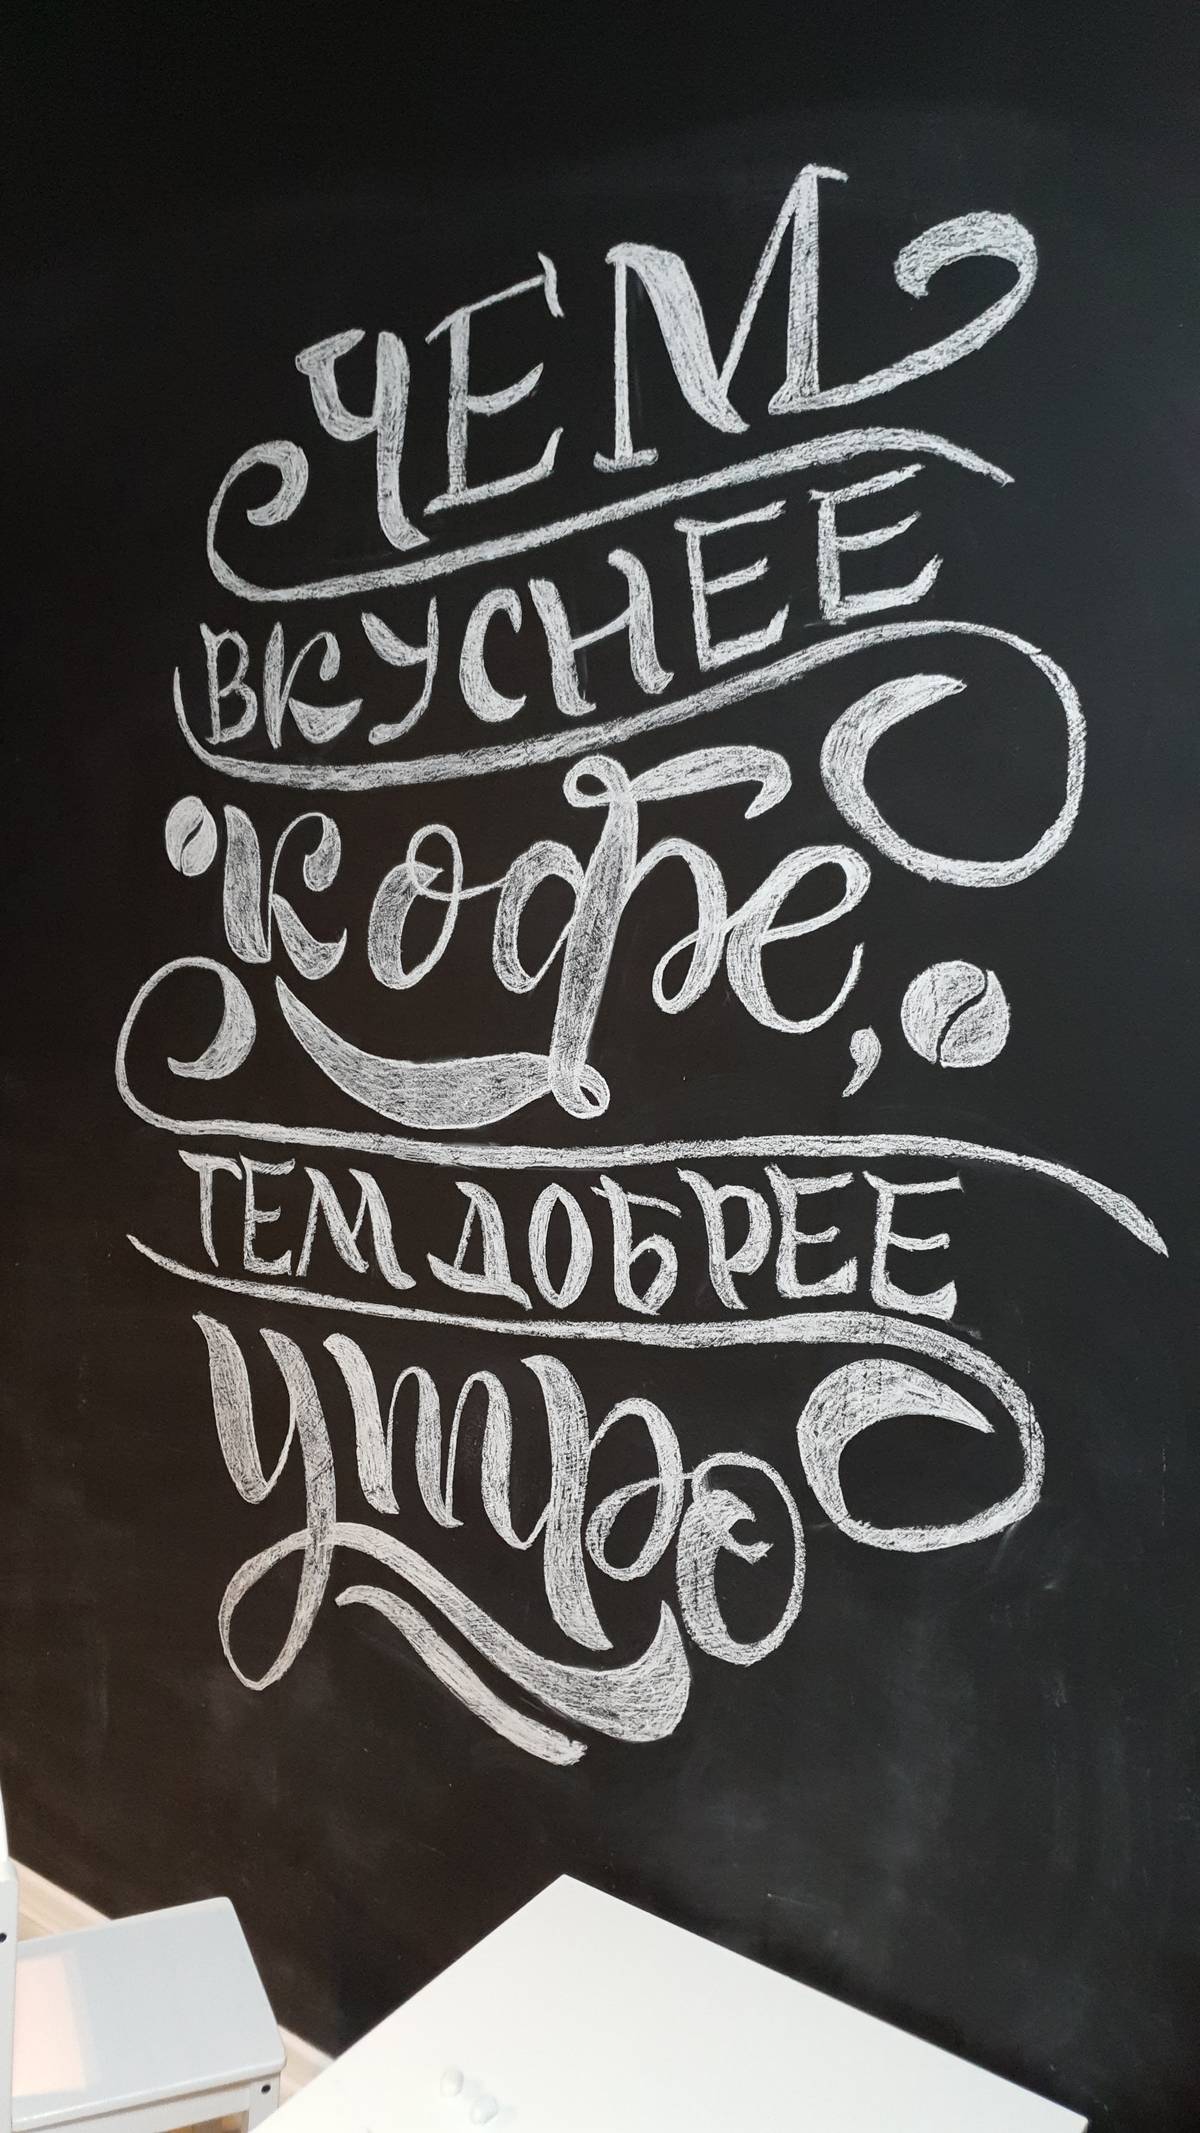 ЧЕМ
ВКУСНЕЕ
кофе,
ТЕМ ДОБРЕЕ
утро